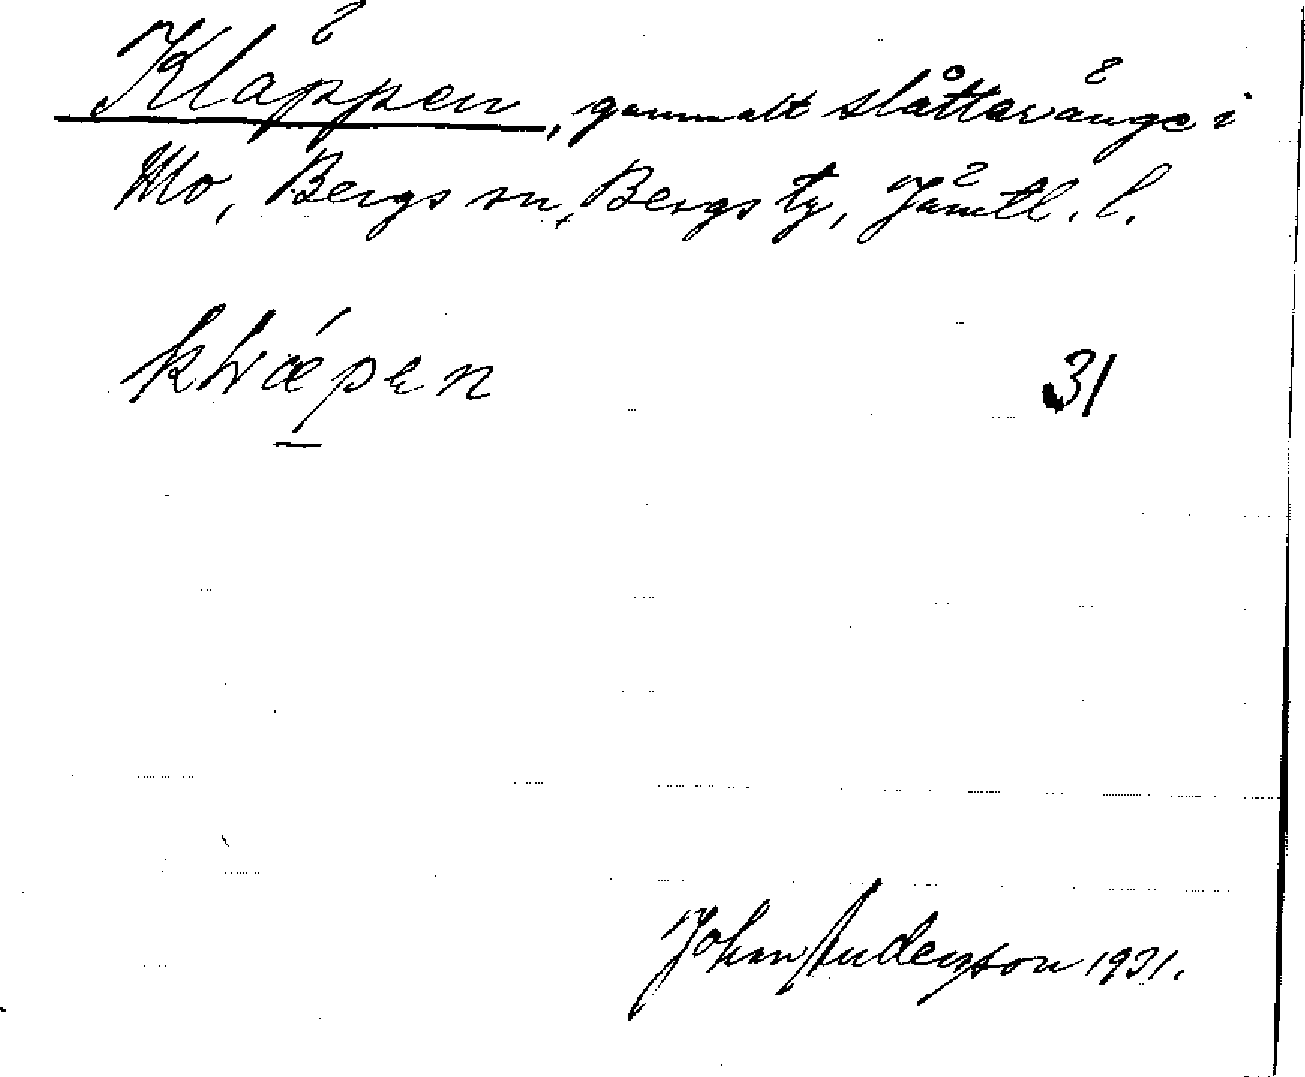 Kläppen, gammalt slåttaränge i
Mo, Bergs sn, Bergs tg, Jämtl. l.
31
Johan Anderson 1931.